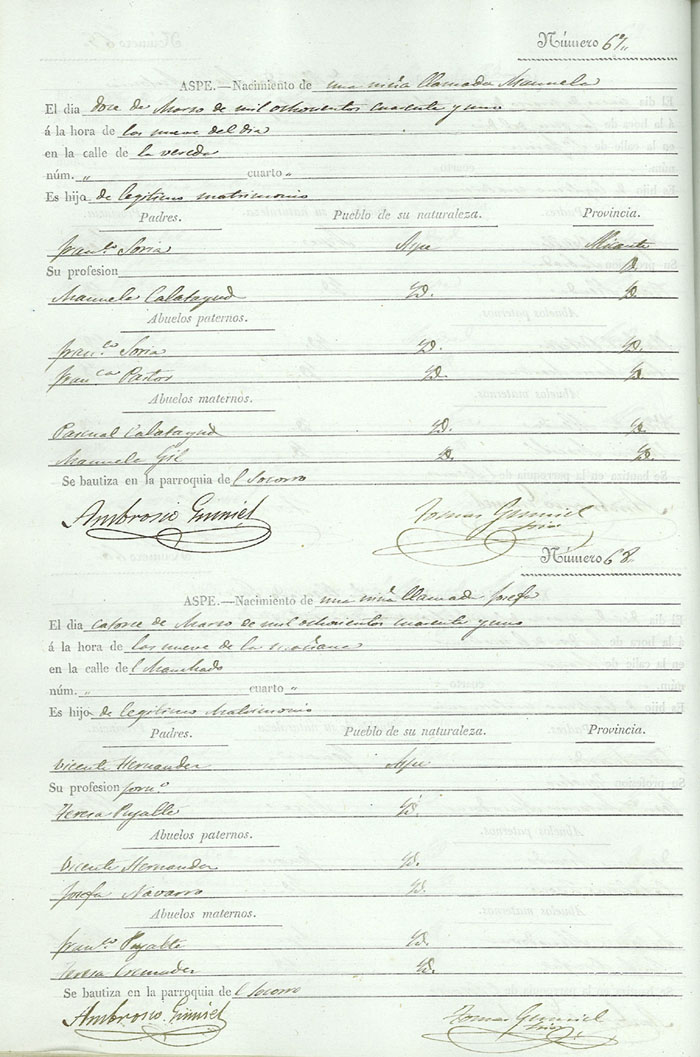 Número 67
ASPE.—Nacimiento de una niña llamada Manuela
El dia doce de Marzo de mil ochocientos cuarenta y uno
á la hora de las nueve del dia
en la calle de la vereda
núm. „ cuarto „
Es hijo de legitimo matrimonio
Padres. Pueblo de su naturaleza. Provincia.
Fran.co Soria Aspe Alicante
Su profesion Yd.
Manuela Calatayud Yd. Yd.
Abuelos paternos.
Fran.co Soria Yd. Yd.
Fran.ca Pastor Yd. Yd.
Abuelos maternos.
Pascual Calatayud Yd. Yd.
Manuela Gil Yd. Yd.
Se bautiza en la parroquia del Socorro
Ambrosio Gumiel Tomas Gumiel
Srio
Número 68
ASPE.—Nacimiento de una niña llamada Josefa
El dia catorce de Marzo de mil ochocientos cuarenta y uno
á la hora de las nueve de la mañana
en la calle del Manchado
núm. „ cuarto „
Es hijo de legitimo Matrimonio
Padres. Pueblo de su naturaleza. Provincia.
Vicente Hernandez Aspe
Su profesion jorn.o
Teresa Pujalte Yd.
Abuelos paternos.
Vicente Hernandez Yd.
Josefa Navarro Yd.
Abuelos maternos.
Fran.co Pujalte Yd.
Teresa Cremades Yd.
Se bautiza en la parroquia del Socorro
Ambrosio Gumiel Tomas Gumiel
Srio